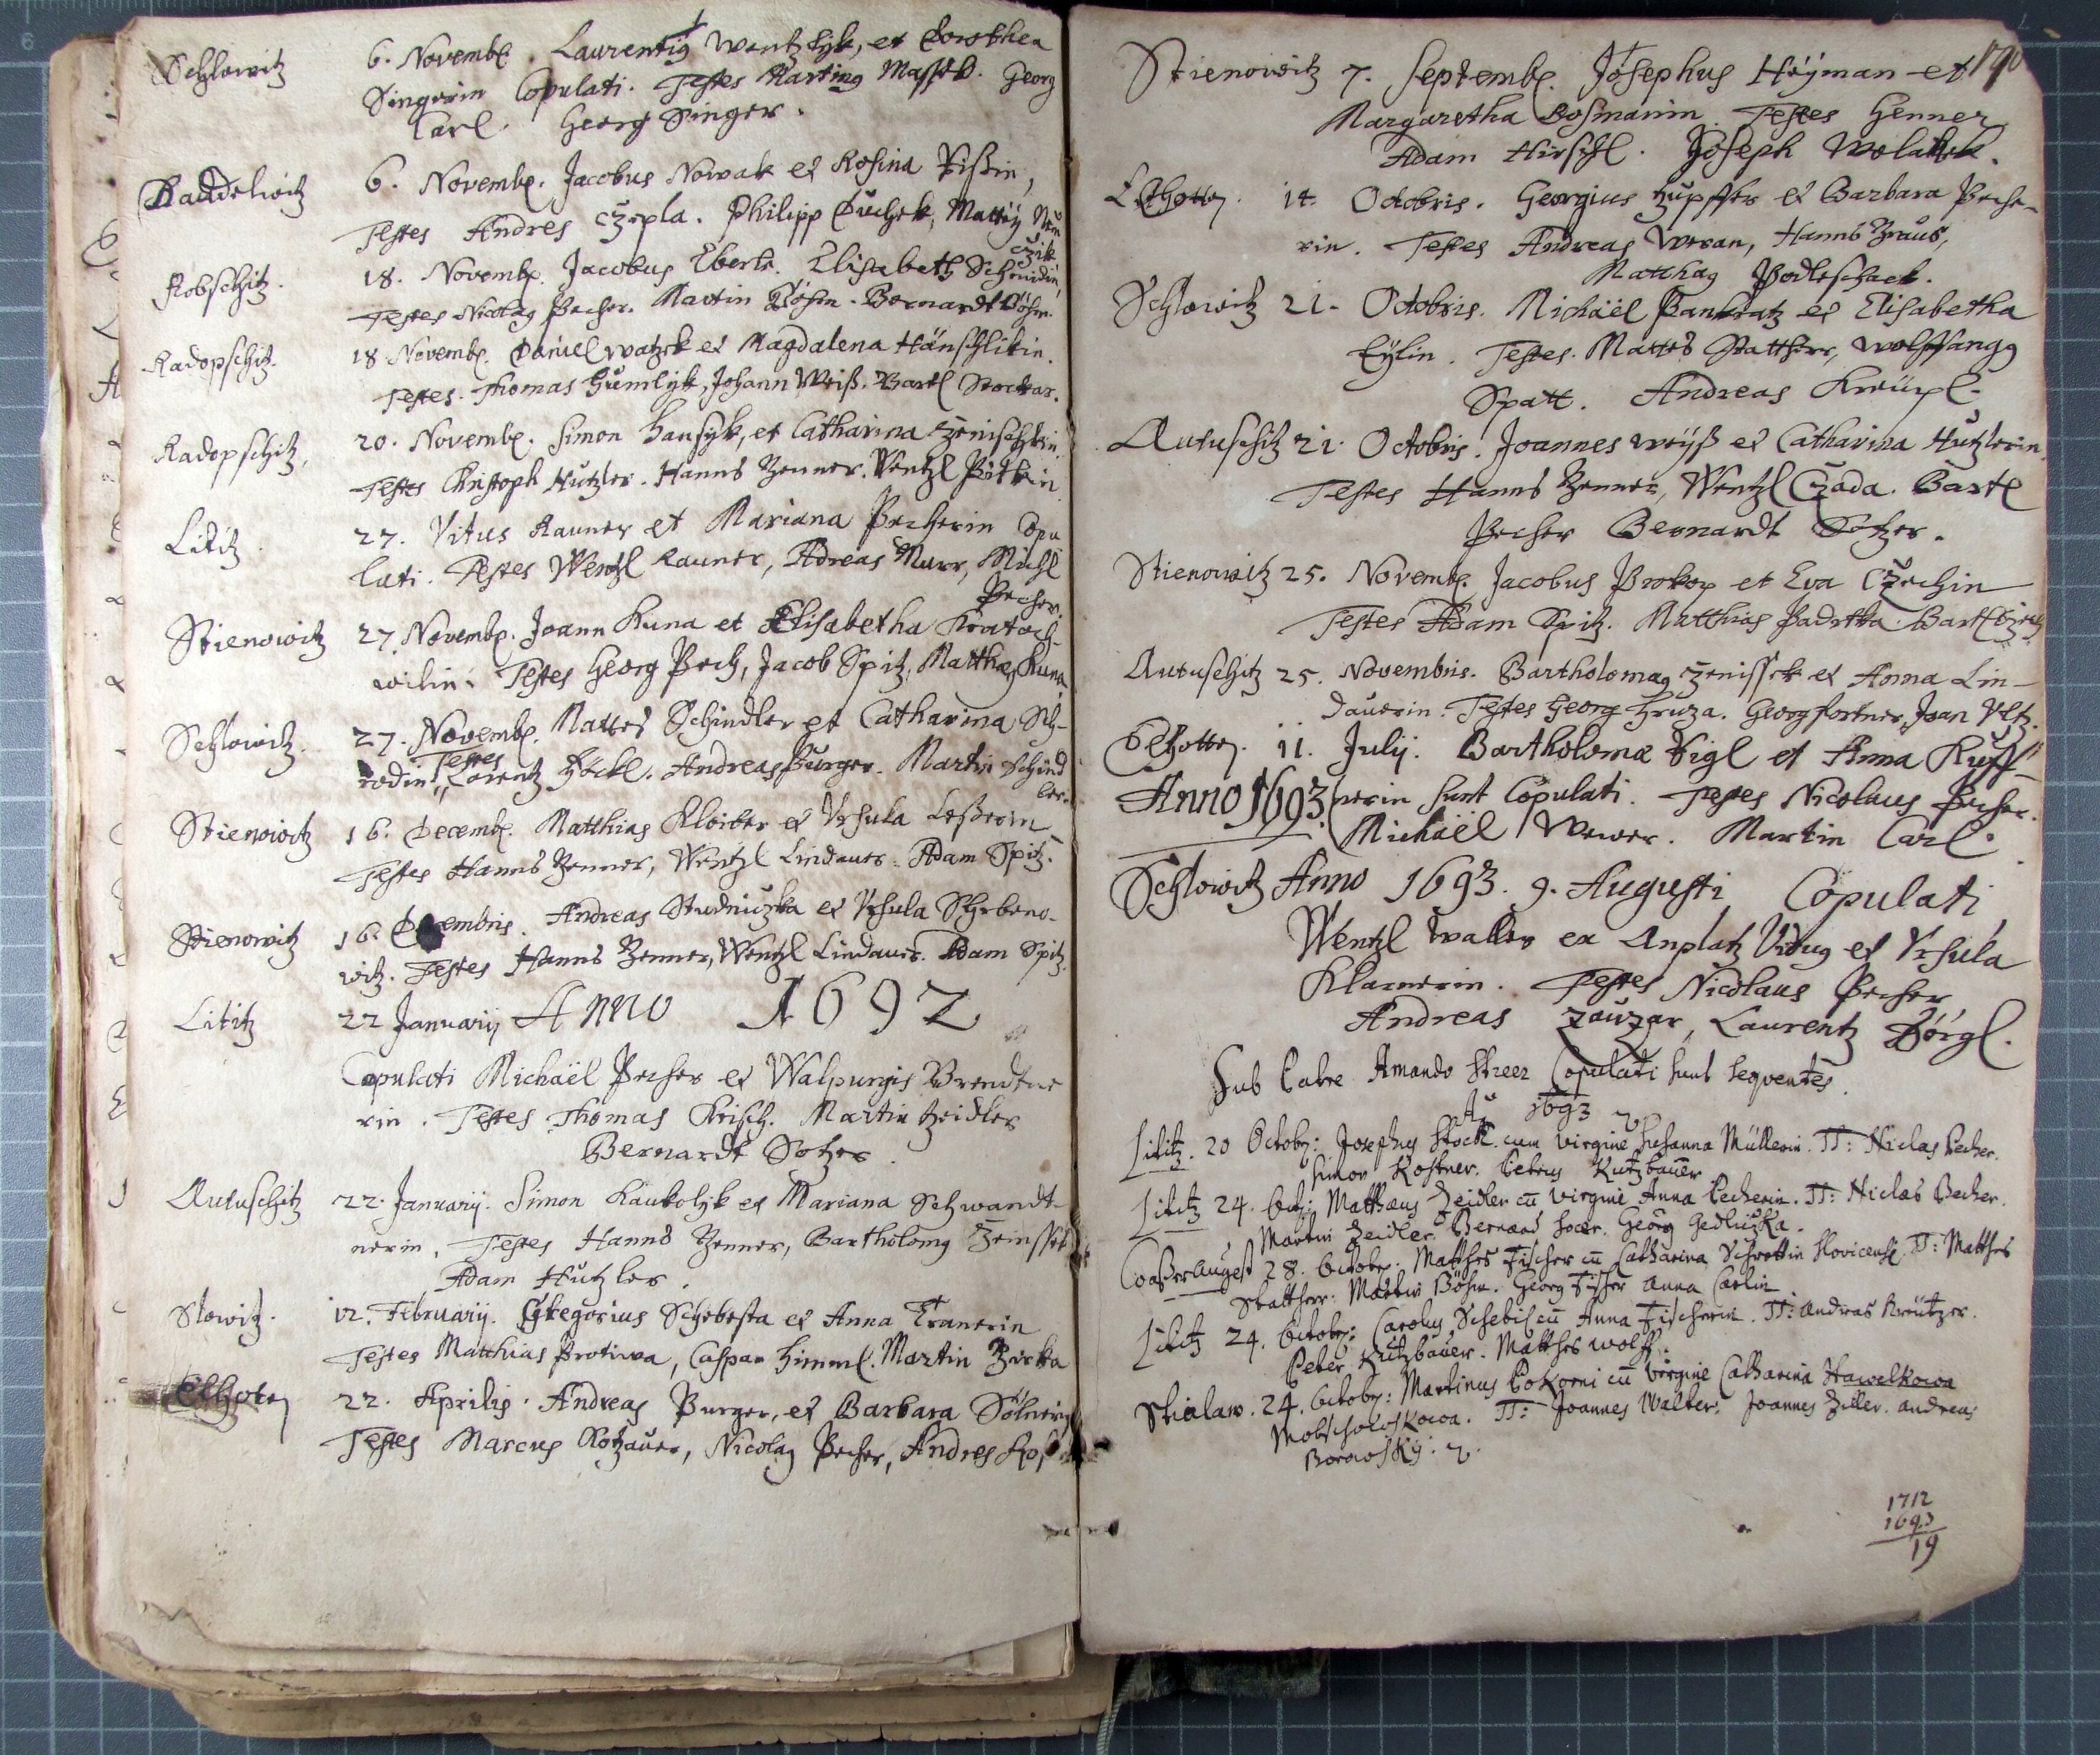 Schlowitz 6. Novemb. Laurentiq Wentzlyk, et Dorothea
Singerin Copulati. Testes Martinq Massek. Georg
Carl. Georg Singer.
Raudelwitz 6. Novemb. Jacobus Nowak et Rosina
Testes Andres Czepla. Philipp Duchek, Mattéy
czik
Robschitz. 18. Novemb. Jacobus Eberle. Elisabeth Schmidin,
Testes Nicolaq Pecher. Martin Böhm. Bernardt Böhm.
Radopschitz. 18 Novemb. Daniel Watzek et Magdalena Hänschlikin.
Testes. Thomas Gumlyk, Johann Weiß. Bartl
Radopschitz, 20. Novemb. Simon Hansyk, et Catharina
Testes Christoph Hutzler. Hanns Zenner. Wentzl
Lititz. 27. Vitus Rauner et Mariana Pecherin Copu
lati. Testes Wentzl Rauner, Adreas Murr, Michl
Pecher.
Stienowitz 27. Novemb. Joann Kuna et Elisabetha Kratoch-
wilin. Testes Georg Pech, Jacob Spitz, Matthæq Kuna
Schlowitz. 27. Novemb. Mattes Schindler et Catharina Sch-
Testes
rödin, Lorentz Höckl. Andreas Purger. Martin Schind
ler.
Stienowitz 16. Decemb. Matthias Kloiber et Vrsula Leßerin
Testes Hanns Zenner, Wentzl Lindauer. Adam Spitz.
Stienowitz 16. Decembris. Andreas Studniczka et Vrsula Schebeno-
witz. Testes Hanns Zenner, Wentzl Lindauer. Adam Spitz.
Lititz 22 Januarij Anno 1692
Copulati Michaël Pecher et Walpurgis Brendtne
rin. Testes Thomas Reisch. Martin Zeidler
Bernardt Sotzer.
Autuschitz 22. Januarij. Simon Kaukolyk et Mariana Schwandt-
nerin. Testes Hanns Zenner, Bartholomq
Adam Hutzler.
Slowitz. 12. Februarij. Gregorius Schebesta et Anna Tranerin
Testes Matthias Protiwa, Caspar Himml. Martin Zirka
Elhoten 22. Aprilis. Andreas Purger, et Barbara
Testes Marcus Rotzauer, Nicolaq Pecher, Andres
190
Stienowitz 7. Septemb. Josephus Heyman et
Margaretha Bosmanin. Testes Henner
Adam Hirschl. Joseph Wolaßek.
Elhotten. 14. Octobris. Georgius Hupffer et Barbara Peche-
rin. Testes Andreas Weran, Hanns Braus,
Matthaq Podleschack.
Schlowitz 21. Octobris. Michaël Pankratz et Elisabetha
Eylin. Testes. Mattes Statthrr, Wolffgangg
Spatt. Andreas Kreuzl.
Autuschitz 21. Octobris. Joannes Weyß et Catharina Hutzlerin.
Testes Hanns Zenner, Wentzl Czada. Bartl
Pecher Bernardt Sotzer.
Stienowitz 25. Novemb. Jacobus Prokop et Eva Czechin
Testes Adam Spitz. Matthias Padrtka. Bartl
Autuschitz 25. Novembris. Bartholomaq Zenissek et Anna Lin-
dauerin. Testes Georg Hruza. Georg Fortner, Joan Veltz.
Elhotten. 11. Julij. Bartholomæ Figl et Anna Kuff-
Anno 1693. nerin sunt Copulati. Testes Nicolaus Pecher.
Michaël Wewer. Martin Carl.
Schlowitz Anno 1693. 9. Augusti Copulati
Wentzl Waller ex Anplatz Viduq et Vrsula
Klamerin. Testes Nicolaus Pecher
Andreas Zauzar, Laurentz Görgl.
Sub Patre Amando Streer Copulati sunt sequentes.
Aõ 1693
Lititz. 20 Octob: Josephus Stöckl cum virgine Susanna Müllerin. TT: Niclas Pecher.
Simon Kostner. Petrus Kutzbauer
Lititz 24. Octob: Matthæus Zeidler cū virgine Anna Pecherin. TT: Niclas Pecher.
Martin Zeidler. Bernard Soczr. Georg Gedliczka.
28. Octob: Matthes Fischer cū Catharina Schrottin TT: Matthes
Statthrr: Martin Böhm. Georg Fischer Anna Carlin
Lititz 24. Octob: Carolus Schebil cū Anna Fischerin. TT: Andreas Kreutzer.
Peter Kutzbauer. Matthes Wolff.
Stialaw. 24. Octob: Martinus Pokorni cū virgine Catharina Hawelkowa
TT: Joannes Walter. Joannes Ziller. Andreas
Borowsky.
1712
1693
19